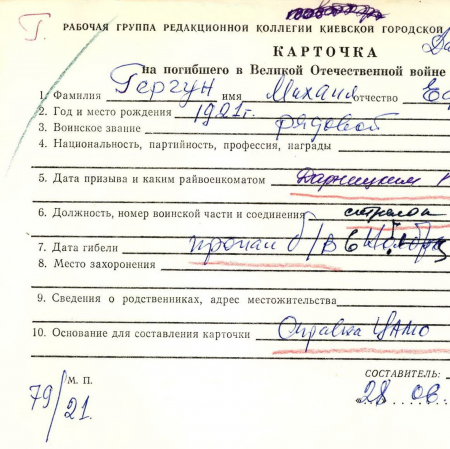 Г.
РАБОЧАЯ ГРУППА РЕДАКЦИОННОЙ КОЛЛЕГИИ КИЕВСКОЙ ГОРОДСКОЙ
КАРТОЧКА
на погибшего в Великой Отечественной войне
1. Фамилия Гергун имя Михаил отчество
2. Год и место рождения 1921г.
3. Воинское звание рядовой
4. Национальность, партийность, профессия, награды
5. Дата призыва и каким райвоенкоматом Дарницким
6. Должность, номер воинской части и соединения стрелок
7. Дата гибели пропал б/в
8. Место захоронения
9. Сведения о родственниках, адрес местожительства
10. Основание для составления карточки Справка ЦАМО
М. П.
СОСТАВИТЕЛЬ:
79/21.
28. 06.